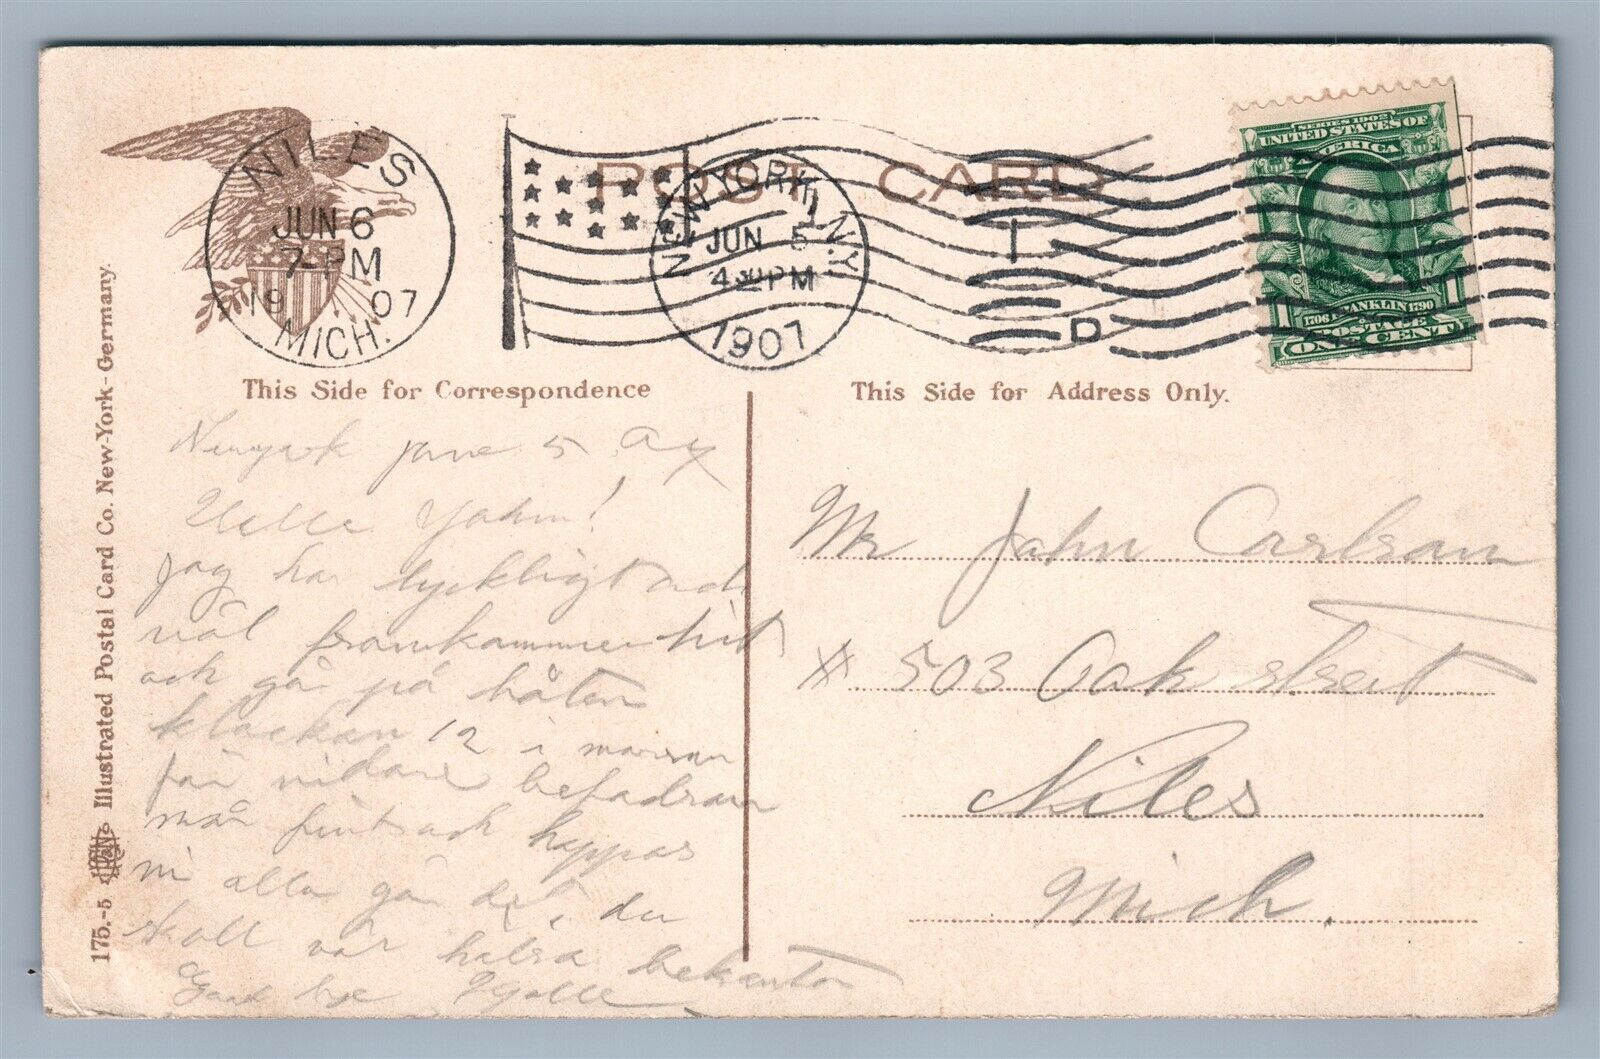 NILES
JUN 6
7-PM
1907
MICH.
NEW YORK, N.Y.
JUN 5
4 30 PM
1907
1
D
POST CARD
SERIES 1902
UNITED STATES OF
AMERICA
1706 FRANKLIN 1790
POSTAGE
1 ONE CENT 1
This Side for Correspondence
This Side for Address Only.
175.-5 Illustrated Postal Card Co. New-York-Germany.
Newyork june 5
Yohn!
jag har lyckligt och
väl framkommit hit
och går på båten
klockan 12 i morran
för vidare befodran
mår fint och hoppas
ni alla gör det, du
skall vär helsa bekanta
Good bye
Mr John Carlson
# 503 Oak street
Niles
Mich.